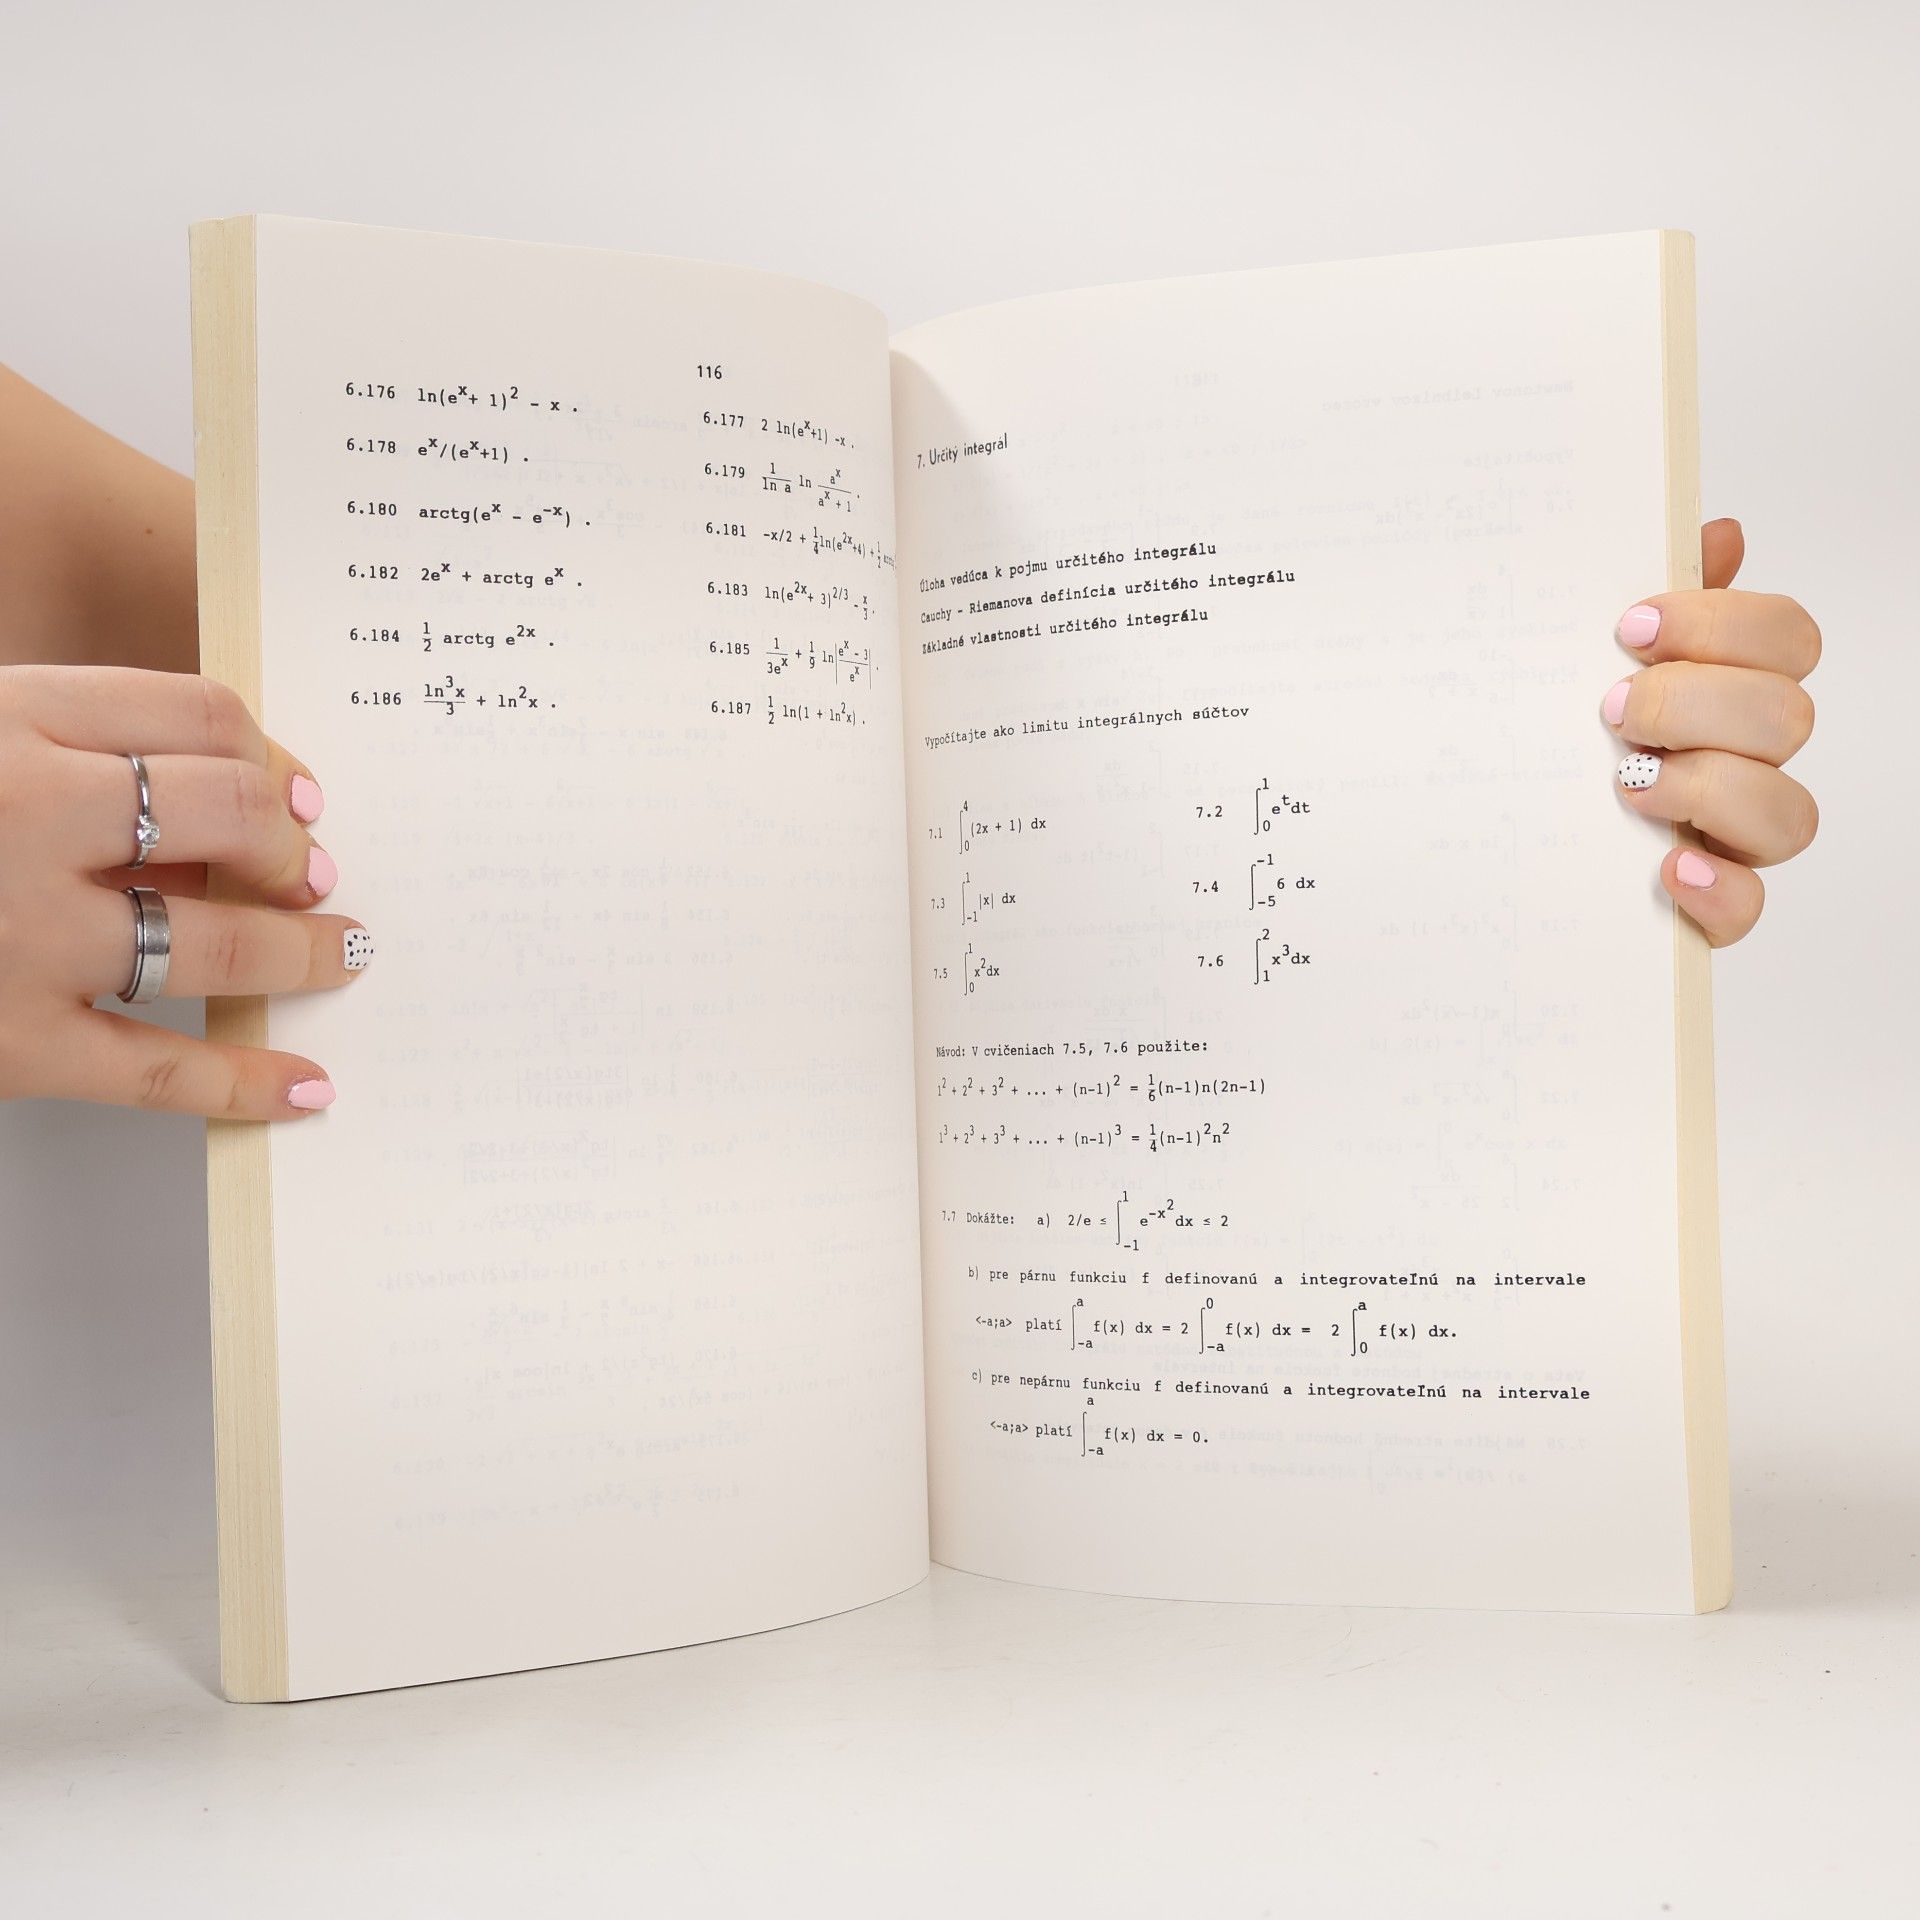 116
6.176 ln(e^x + 1)^2 - x .
6.177 2 ln(e^x+1) -x .
6.178 e^x/(e^x+1) .
6.179 1/ln a ln a^x/a^x + 1 .
6.180 arctg(e^x - e^-x) .
6.181 -x/2 + 1/4 ln(e^2x+4) + 1/2
6.182 2e^x + arctg e^x .
6.183 ln(e^2x + 3)^2/3 - x/3 .
6.184 1/2 arctg e^2x .
6.185 1/3e^x + 1/9 ln|e^x - 3/e^x| .
6.186 ln^3x/3 + ln^2x .
6.187 1/2 ln(1 + ln^2x) .
7. Určitý integrál
Úloha vedúca k pojmu určitého integrálu
Cauchy - Riemanova definícia určitého integrálu
Základné vlastnosti určitého integrálu
Vypočítajte ako limitu integrálnych súčtov
7.1 ∫_0^4 (2x + 1) dx
7.2 ∫_0^1 e^t dt
7.3 ∫_-1^1 |x| dx
7.4 ∫_-5^-1 6 dx
7.5 ∫_0^1 x^2 dx
7.6 ∫_1^2 x^3 dx
Návod: V cvičeniach 7.5, 7.6 použite:
1^2 + 2^2 + 3^2 + ... + (n-1)^2 = 1/6 (n-1)n(2n-1)
1^3 + 2^3 + 3^3 + ... + (n-1)^3 = 1/4 (n-1)^2n^2
7.7 Dokážte: a) 2/e ≤ ∫_-1^1 e^-x^2 dx ≤ 2
b) pre párnu funkciu f definovanú a integrovateľnú na intervale
<-a;a> platí ∫_-a^a f(x) dx = 2 ∫_-a^0 f(x) dx = 2 ∫_0^a f(x) dx.
c) pre nepárnu funkciu f definovanú a integrovateľnú na intervale
<-a;a> platí ∫_-a^a f(x) dx = 0.